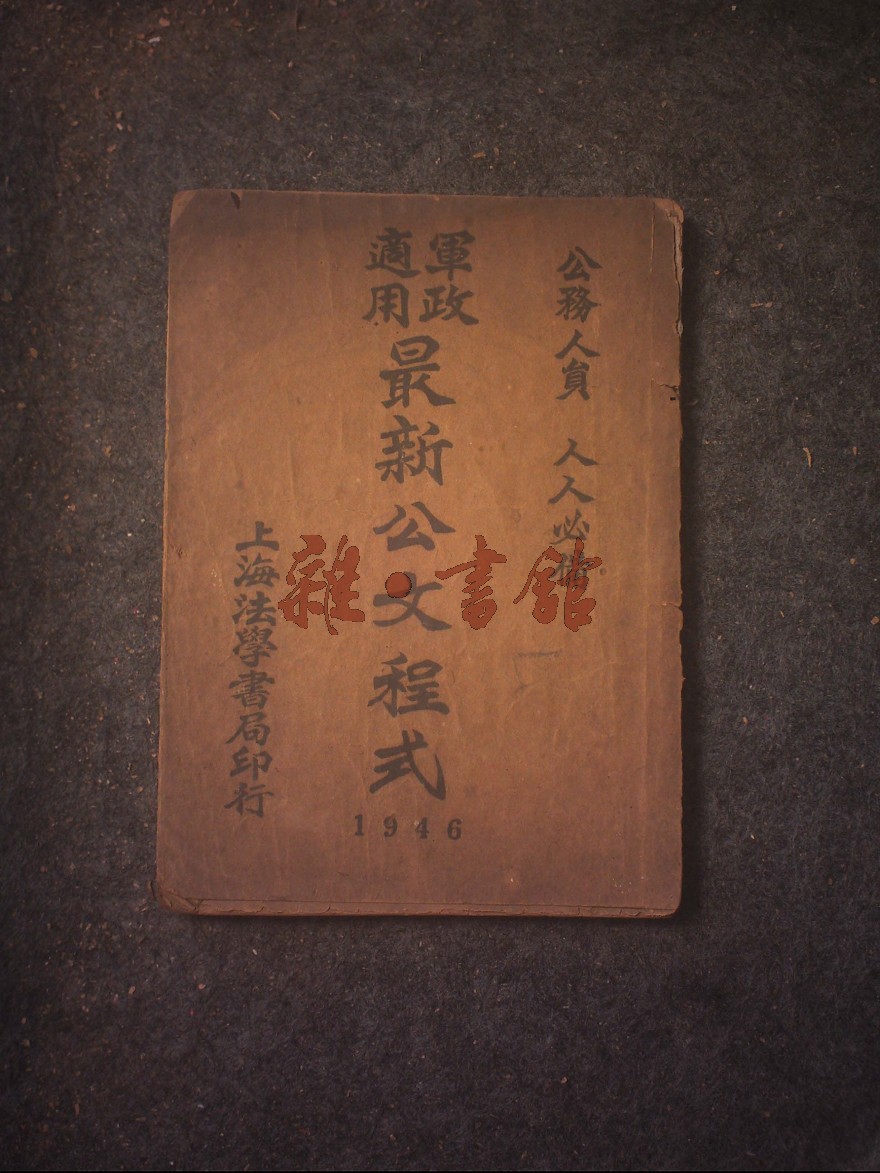 公務人員 人人必備
軍政
適用
最新公文程式
1946
上海法學書局印行
雜·書館